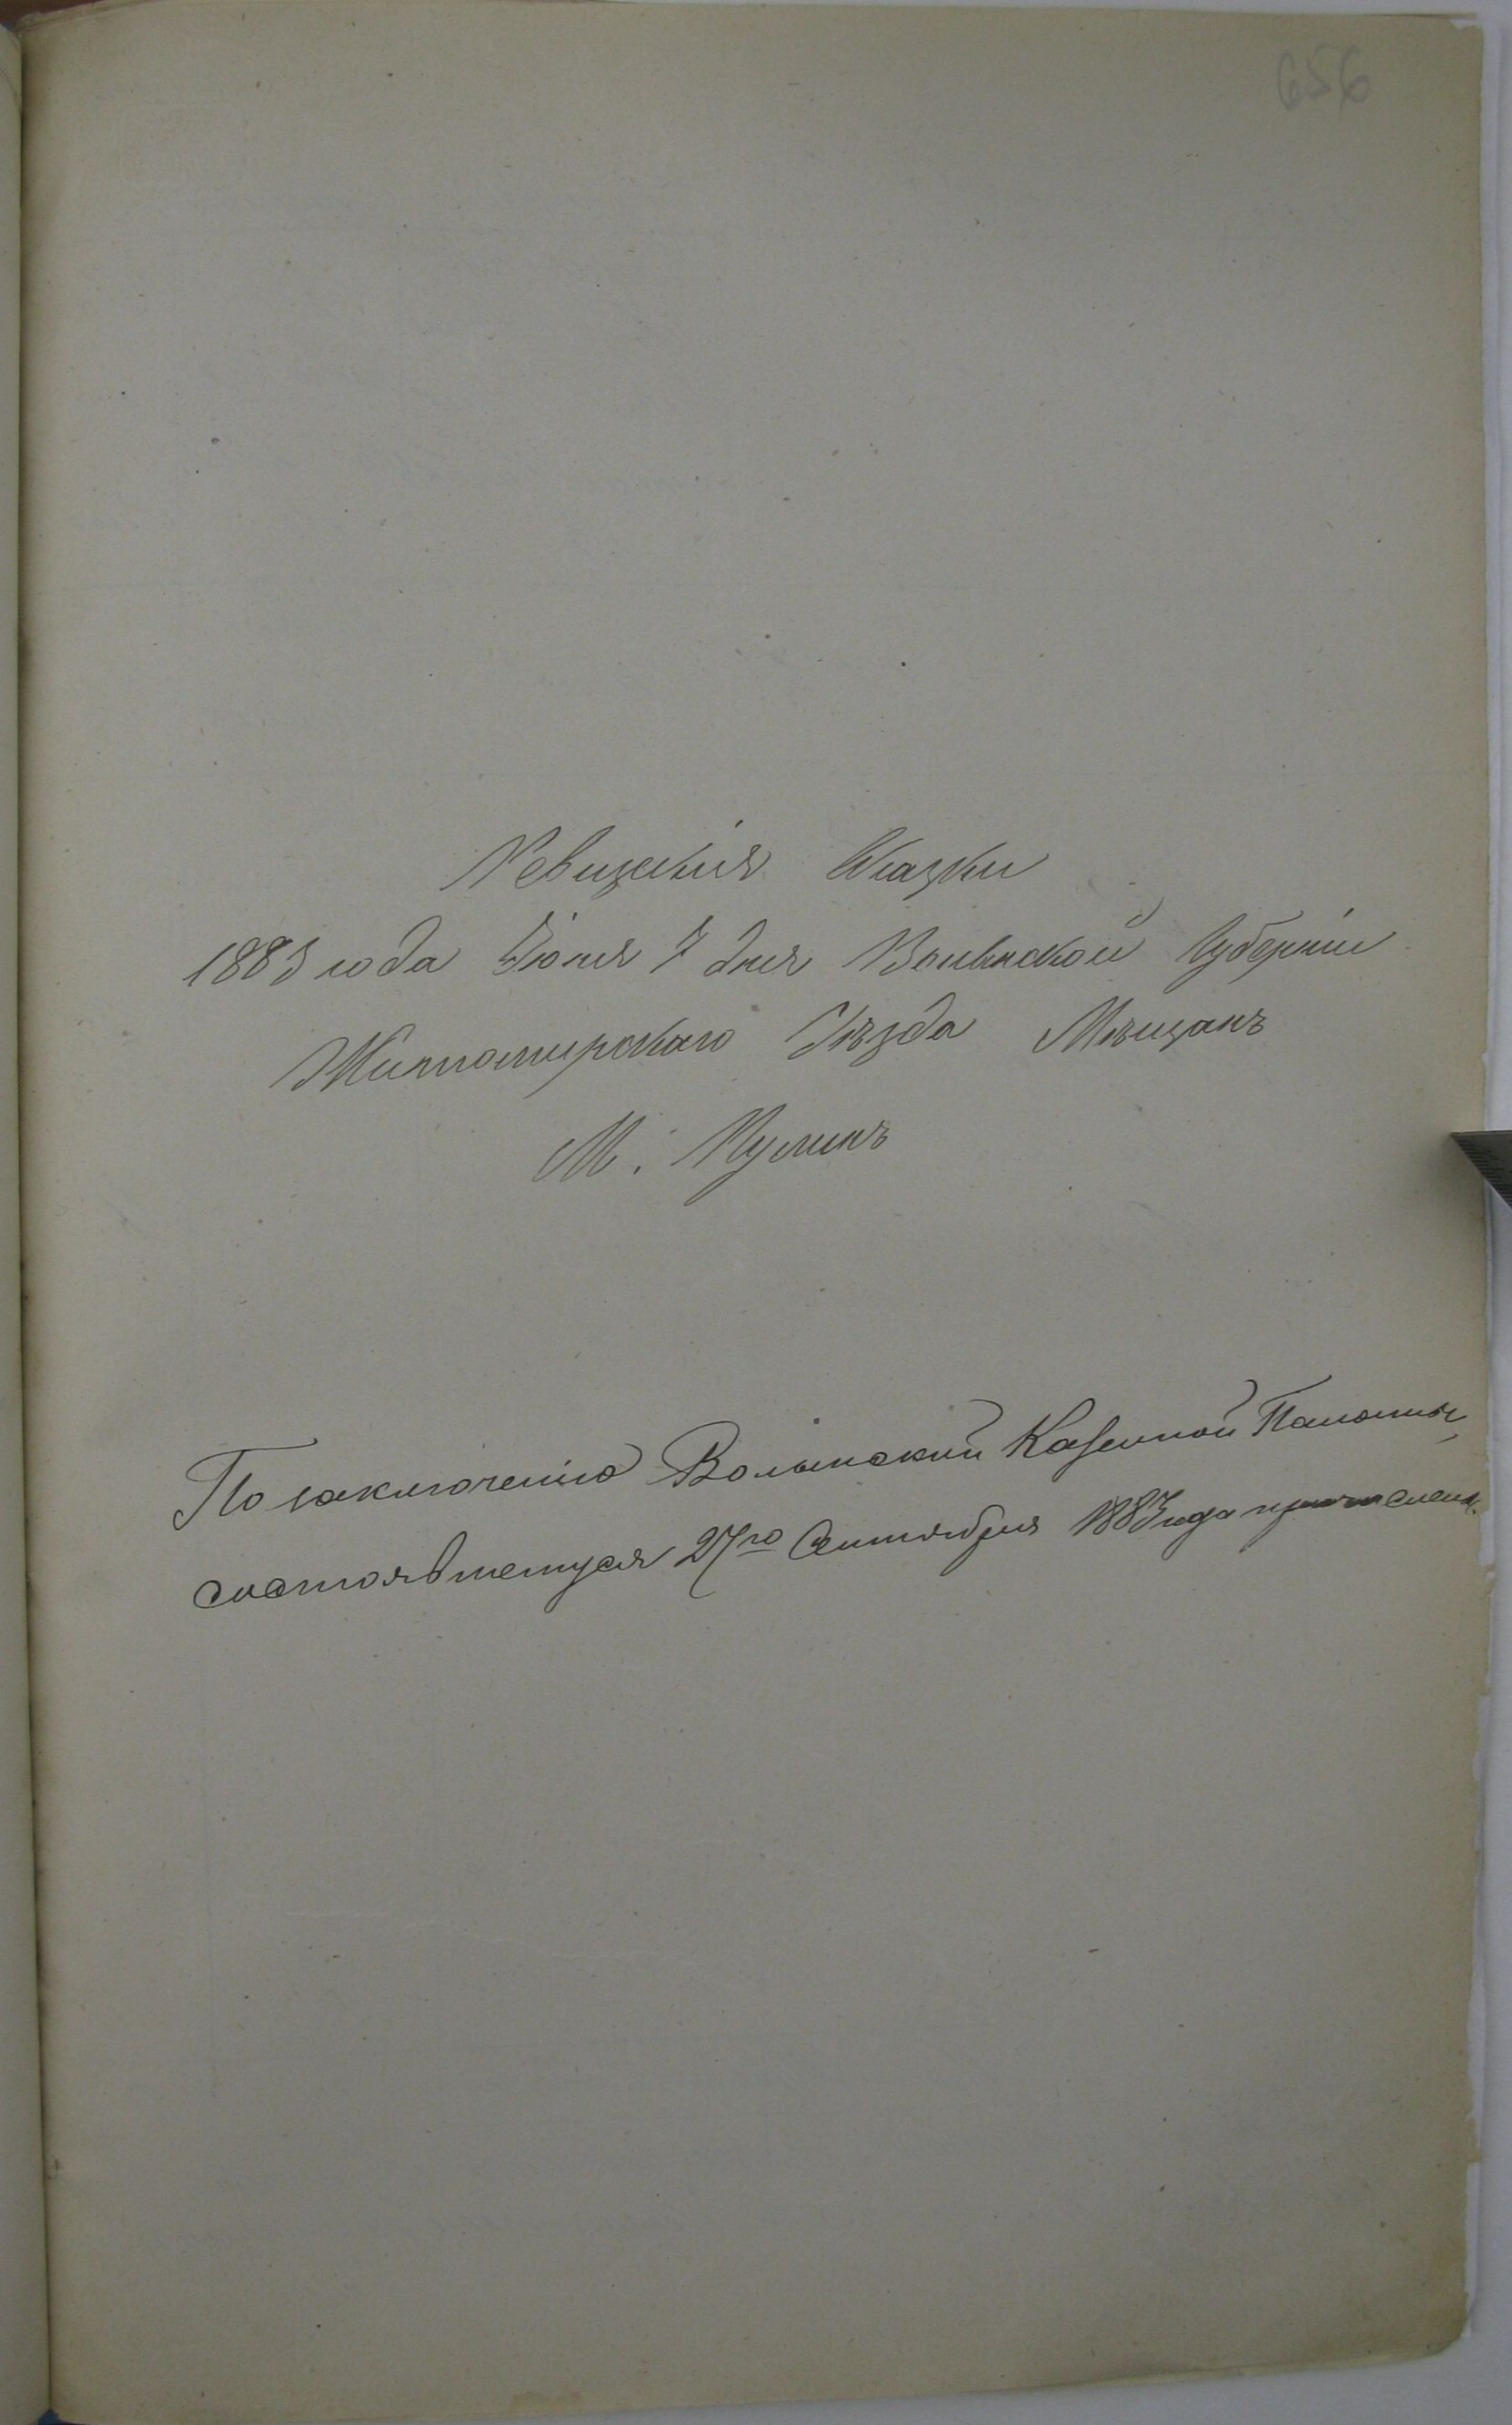 656
Ревизскія Сказки
1883 года Іюня 7 дня Волынской Губерніи
Житомирскаго Уѣзда Мѣщанъ
М. Кулинъ
По заключенію Волынский Казенной Палаты,
состоявшемуся 27го Сентября 1883 года причислены.